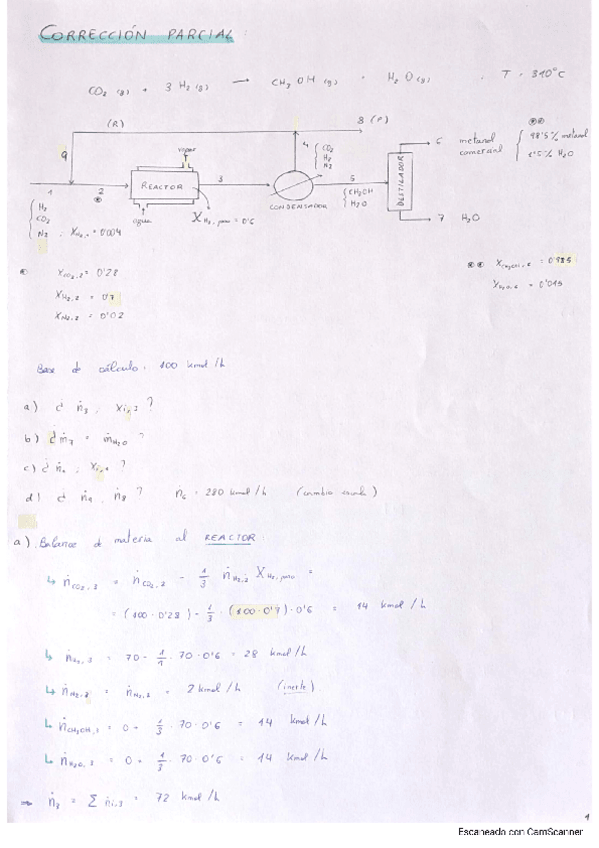 CORRECCIÓN PARCIAL
CO₂ (g) + 3 H₂ (g) → CH₃OH (g) + H₂O (g) . T = 310°C
(R)
8 (P)
9
vapor
4
CO₂
H₂
N₂
6 metanol comercial
98'5% metanol
1'5% H₂O
1
2
REACTOR
3
5
CH₃OH
H₂O
DESTILADOR
CONDENSADOR
agua
X H₂, paso = 0'6
7 H₂O
H₂
CO₂
N₂ , X N₂,1 = 0'004
X CO₂,2 = 0'28
X H₂,2 = 0'7
X N₂,2 = 0'02
= 0'985
X H₂O,6 = 0'015
Base de cálculo: 100 kmol/h
a) ¿ ṅ₃ , xi,3 ?
b) ¿ ṁ₇ = ṁ H₂O ?
c) ¿ ṅ₁ , xi,1 ?
d) ¿ ṅ₁ , ṅ₈ ? ṅ₆ = 280 kmol/h (cambio escala)
a) Balance de materia al REACTOR
↳ ṅ CO₂,3 = ṅ CO₂,2 - 1/3 ṅ H₂,2 X H₂,paso =
= (100 · 0'28) - 1/3 · (100 · 0'7) · 0'6 = 14 kmol/h
↳ ṅ H₂,3 = 70 - 1/1 · 70 · 0'6 = 28 kmol/h
↳ ṅ N₂,3 = ṅ N₂,2 = 2 kmol/h (inerte)
↳ ṅ CH₃OH,3 = 0 + 1/3 · 70 · 0'6 = 14 kmol/h
↳ ṅ H₂O,3 = 0 + 1/3 · 70 · 0'6 = 14 kmol/h
⇒ ṅ₃ = Σ ṅi,3 = 72 kmol/h
1
Escaneado con CamScanner